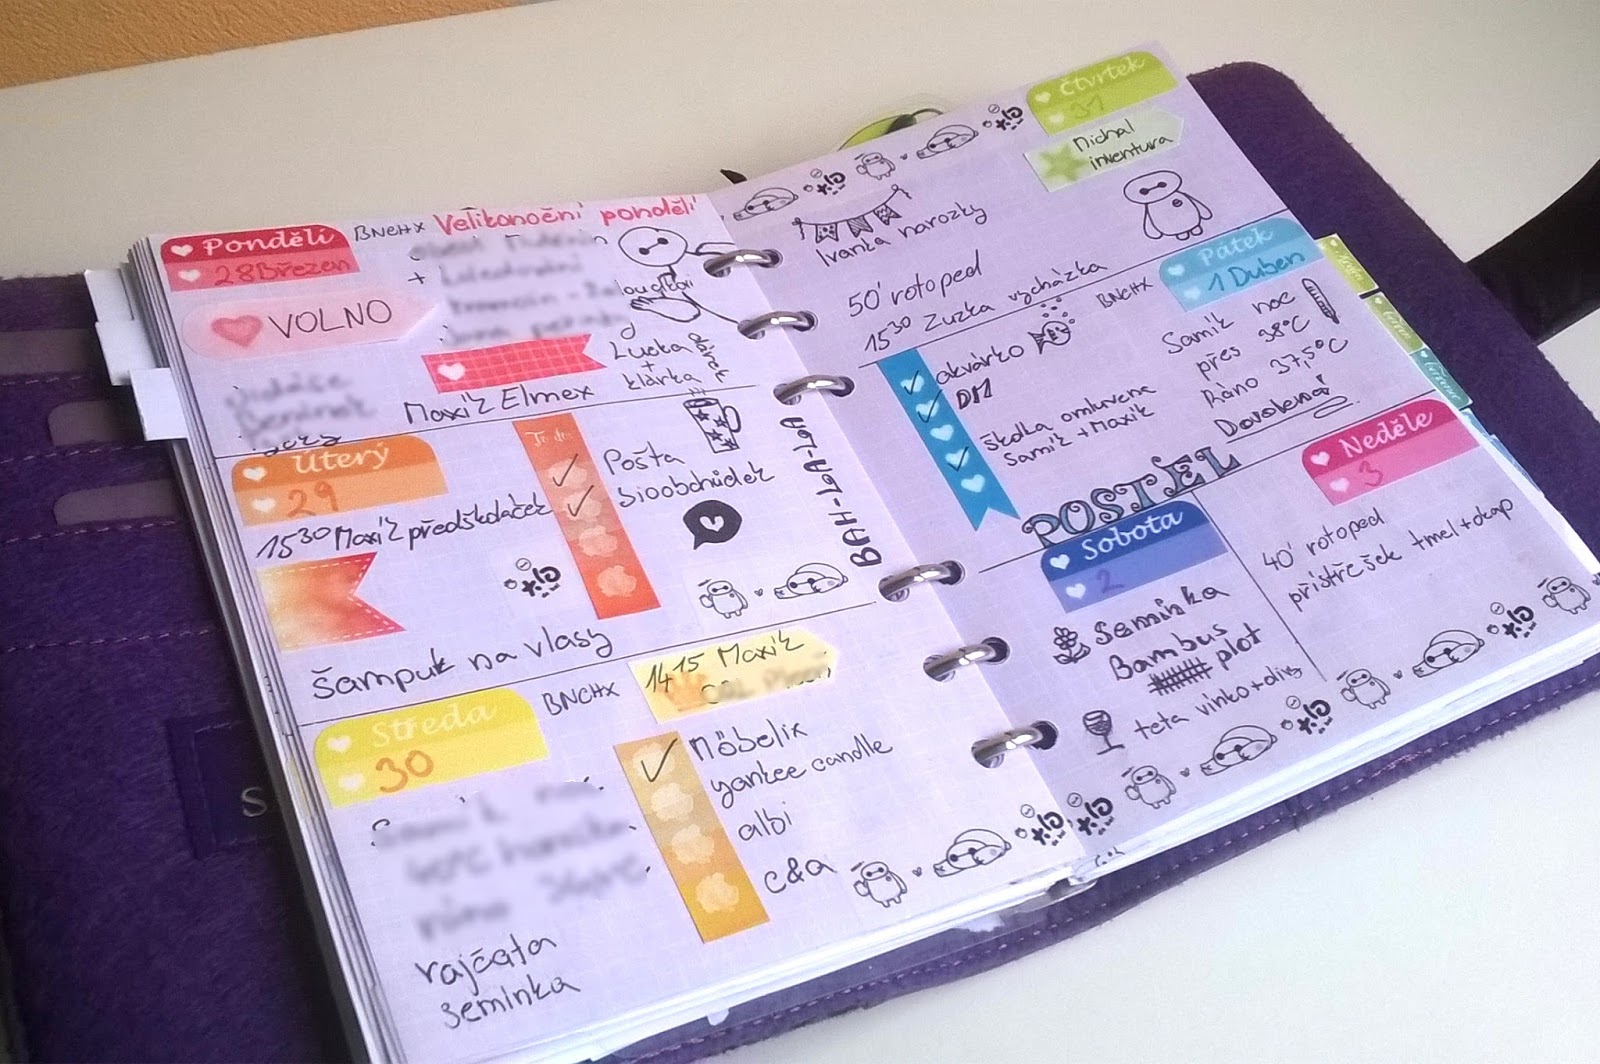 Pondělí
28 Březen
BNCHX
Velikonoční pondělí
+
VOLNO
Lucka
+
klárka
dárek
Maxík Elmex
Úterý
29
To do
Pošta
bioobchůdek
15³⁰ Maxík předškoláček
šampuk na vlasy
BAH-LA-LA
Středa
30
BNCHX
14¹⁵ Maxík
Möbelix
yankee candle
albi
c&a
rajčata
semínka
Čtvrtek
31
Michal
inventura
Ivanka narozky
50' rotoped
15³⁰ Zuzka vycházka
Pátek
1 Duben
BNCHX
akvárko
DM
školka omluvena
Samík + Maxík
Samík noc
přes 38°C
Ráno 37,5°C
Dovolená
POSTEL
Sobota
2
Semínka
Bambus
plot
teta vínko + olivy
Neděle
3
40' rotoped
přístřešek tmel + okap
S